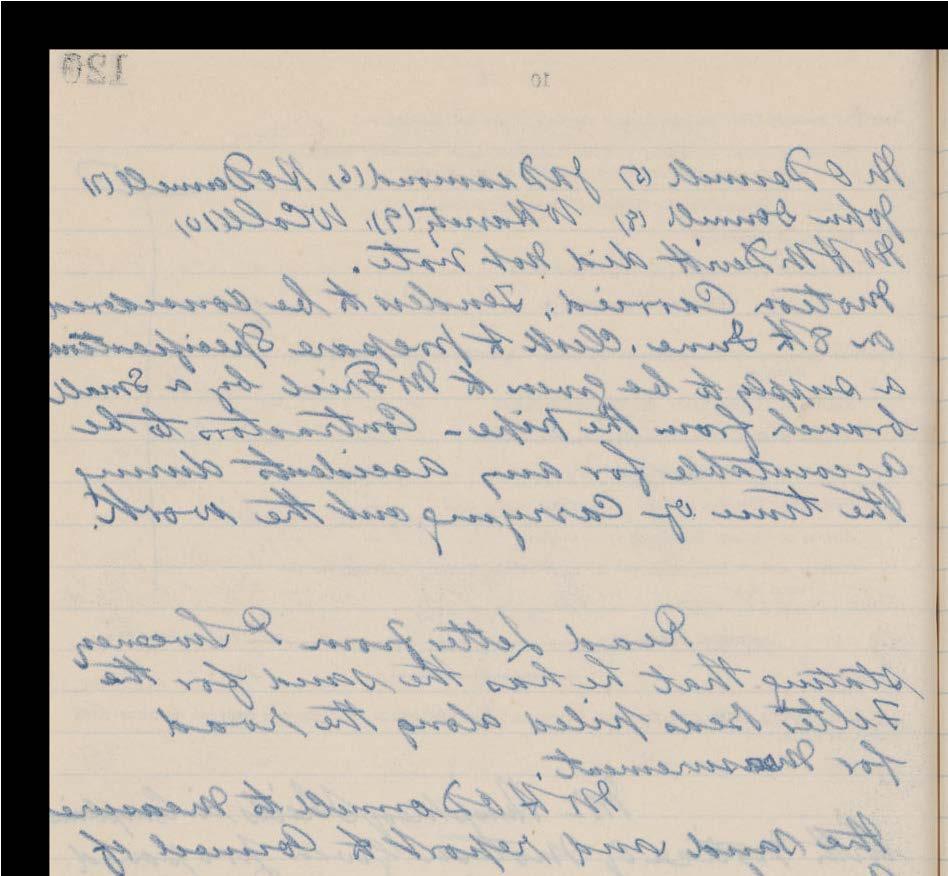 126
10
Mr O Donnell (5) J A Deamond (6), H O Donnell (7),
John Donnell (8), W Harrity (9), W Coll (10),
Mr H Mc Devitt did not vote.
Motion Carried, Tenders to be Considered
on 8th June. Clerk to prepare Specification
a supply to be given to Mr Friel by a Small
branch from the Pipe - Contractors to be
accountable for any accidents during
the time of Carrying out the work.
Read letter from P Sweeney
stating that he has the sand for the
Filter beds piled along the road
for Measurement.
Mr H O Donnell to Measure
the sand and report to Council if